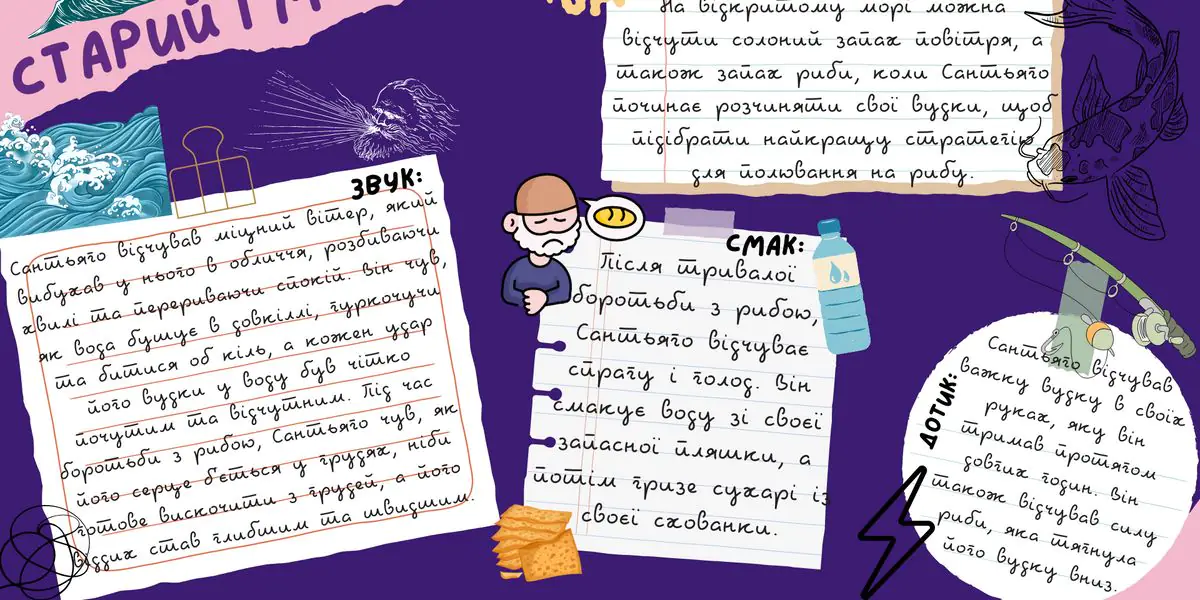 СТАРИЙ І М
На відкритому морі можна
відчути солоний запах повітря, а
також запах риби, коли Сантьяго
починає розчиняти свої вудки, щоб
підібрати найкращу стратегію
для полювання на рибу.
ЗВУК:
Сантьяго відчував міцний вітер, який
вибухав у нього в обличчя, розбиваючи
хвилі та перериваючи спокій. Він чув,
як вода бушує в довкіллі, гуркочучи
та битися об кіль, а кожен удар
його вудки у воду був чітко
почутим та відчутним. Під час
боротьби з рибою, Сантьяго чув, як
його серце б'ється у грудях, ніби
готове вискочити з грудей, а його
віддих став глибшим та швидшим.
СМАК:
Після тривалої
боротьби з рибою,
Сантьяго відчуває
спрагу і голод. Він
смакує воду зі своєї
запасної пляшки, а
потім гризе сухарі із
своєї схованки.
ДОТИК:
Сантьяго відчував
важку вудку в своїх
руках, яку він
тримав протягом
довгих годин. Він
також відчував силу
риби, яка тягнула
його вудку вниз.